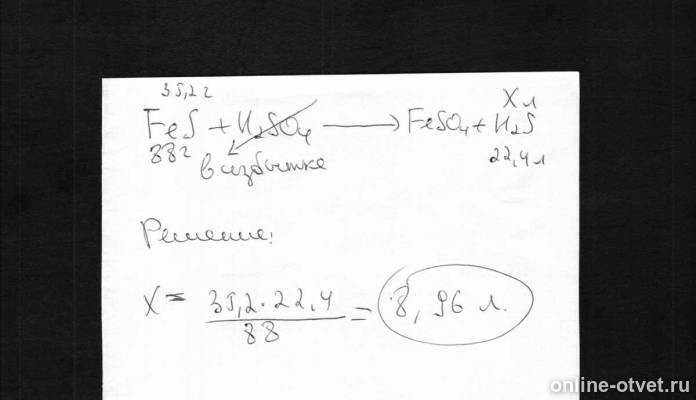 35,2 г
X л
FeS + H₂SO₄ ⟶ FeSO₄ + H₂S
88 г
22,4 л
в избытке
Решение:
X = 35,2 · 22,4 / 88 = 8,96 л.
online-otvet.ru